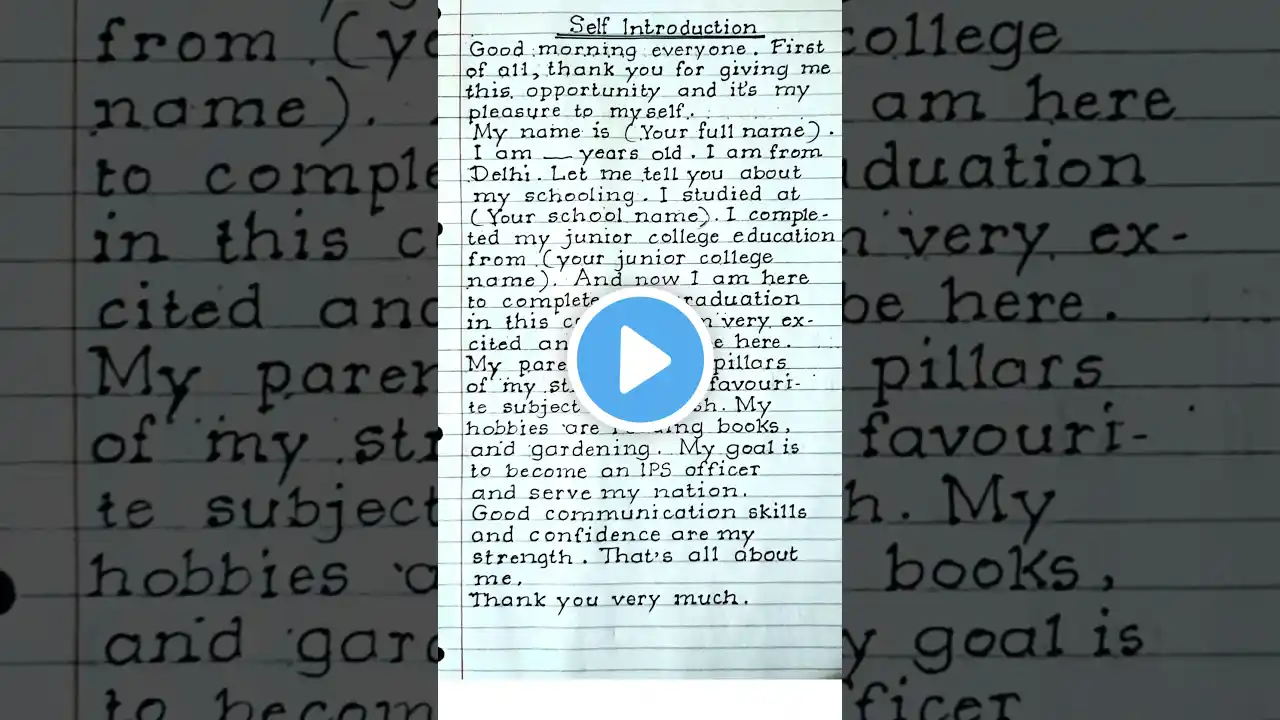 Self Introduction
Good morning everyone. First
of all, thank you for giving me
this opportunity and it's my
pleasure to myself.
My name is (Your full name).
I am __ years old. I am from
Delhi. Let me tell you about
my schooling. I studied at
(Your school name). I comple-
ted my junior college education
from (your junior college
name). And now I am here
to complete graduation
in this very ex-
cited here.
My pillars
of my favouri-
te subject My
hobbies are books,
and gardening. My goal is
to become an IPS officer
and serve my nation.
Good communication skills
and confidence are my
strength. That's all about
me,
Thank you very much.